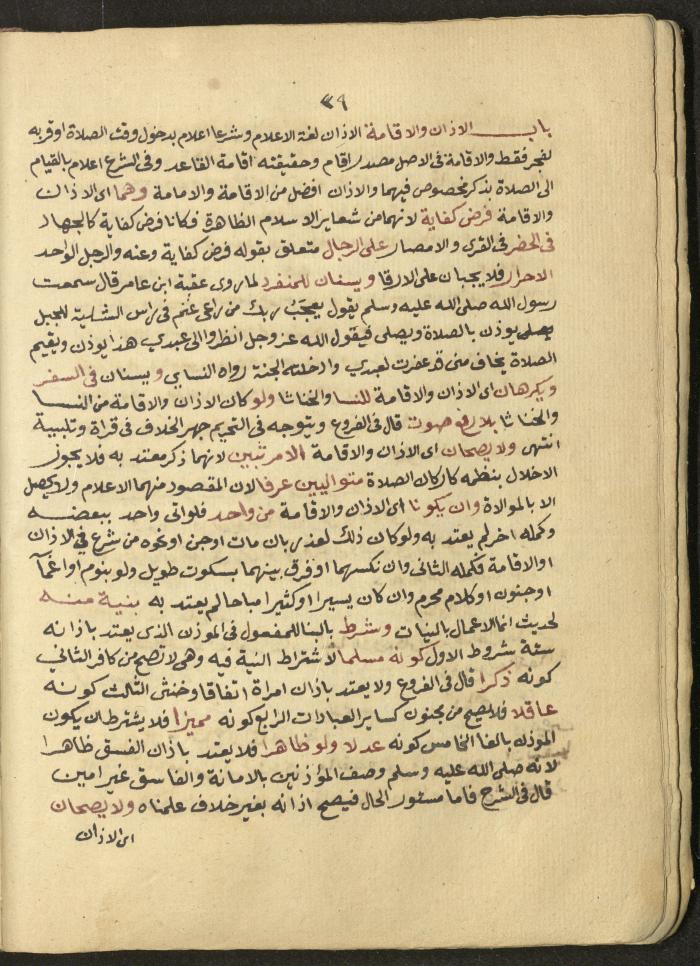 ٣٩
باب الاذان والاقامة الاذان لغة الاعلام وشرعا اعلام بدخول وقت الصلاة او قربه
لفجر فقط والاقامة فى الاصل مصدر اقام وحقيقته اقامة القاعد وفى الشرع اعلام بالقيام
الى الصلاة بذكر مخصوص فيهما والاذان افضل من الاقامة والامامة وهما اى الاذان
والاقامة فرض كفاية لانهما من شعاير الاسلام الظاهرة فكانا فرض كفاية كالجهاد
فى الحضر فى القرى والامصار على الرجال متعلق بقوله فرض كفاية وعنه والرجل الواحد
الاحرار فلا يجبان على الارقا ويسنان للمنفرد لما روى عقبة ابن عامر قال سمعت
رسول الله صلى الله عليه وسلم يقول يعجب ربك من راعى غنم فى راس الشظية للجبل
يوذن بالصلاة ويصلى فيقول الله عز وجل انظروا الى عبدي هذا يوذن ويقيم
الصلاة يخاف منى قد غفرت لعبدي وادخلته الجنة رواه النساي ويسنان فى السفر
ويكرهان اى الاذان والاقامة للنسا والخناثا ولو كان الاذان والاقامة من النسا
والخناثا بلا رفع صوت قال فى الفروع ويتوجه فى التحريم جهر الخلاف فى قراة وتلبية
انتهى ولا يصحان اى الاذان والاقامة الا مرتبين لانهما ذكر معتد به فلا يجوز
الاخلال بنظمه كاركان الصلاة متواليين عرفا لان المقصود منهما الاعلام ولا يحصل
الا بالموالاة وان يكونا اى الاذان والاقامة من واحد فلو اتى واحد ببعضه
وكمله اخر لم يعتد به ولو كان ذلك لعذر بان مات او جن او نحوه من شرع فى الاذان
او الاقامة فكمله الثانى وان نكسهما او فرق بينهما بسكوت طويل ولو بنوم او اغمآ
او جنون او كلام محرم وان كان يسيرا او كثيرا مباحا لم يعتد به بنية منه
لحديث انما الاعمال بالنيات وشرط بالبنا للمفعول فى الموذن الذى يعتد باذانه
ستة شروط الاول كونه مسلما لاشتراط النية فيه وهى لا تصح من كافر الثانى
كونه ذكرا قال فى الفروع ولا يعتد باذان امراة اتفاقا وخنثى الثالث كونه
عاقلا فلا يصح من مجنون كساير العبادات الرابع كونه مميزا فلا يشترط ان يكون
الموذن بالغا الخامس كونه عدلا ولو ظاهرا فلا يعتد باذان الفسق ظاهرا
لانه صلى الله عليه وسلم وصف المؤذنين بالامانة والفاسق غير امين
قال فى الشرح فاما مستور الحال فيصح اذانه بغير خلاف علمناه ولا يصحان
اى الاذان